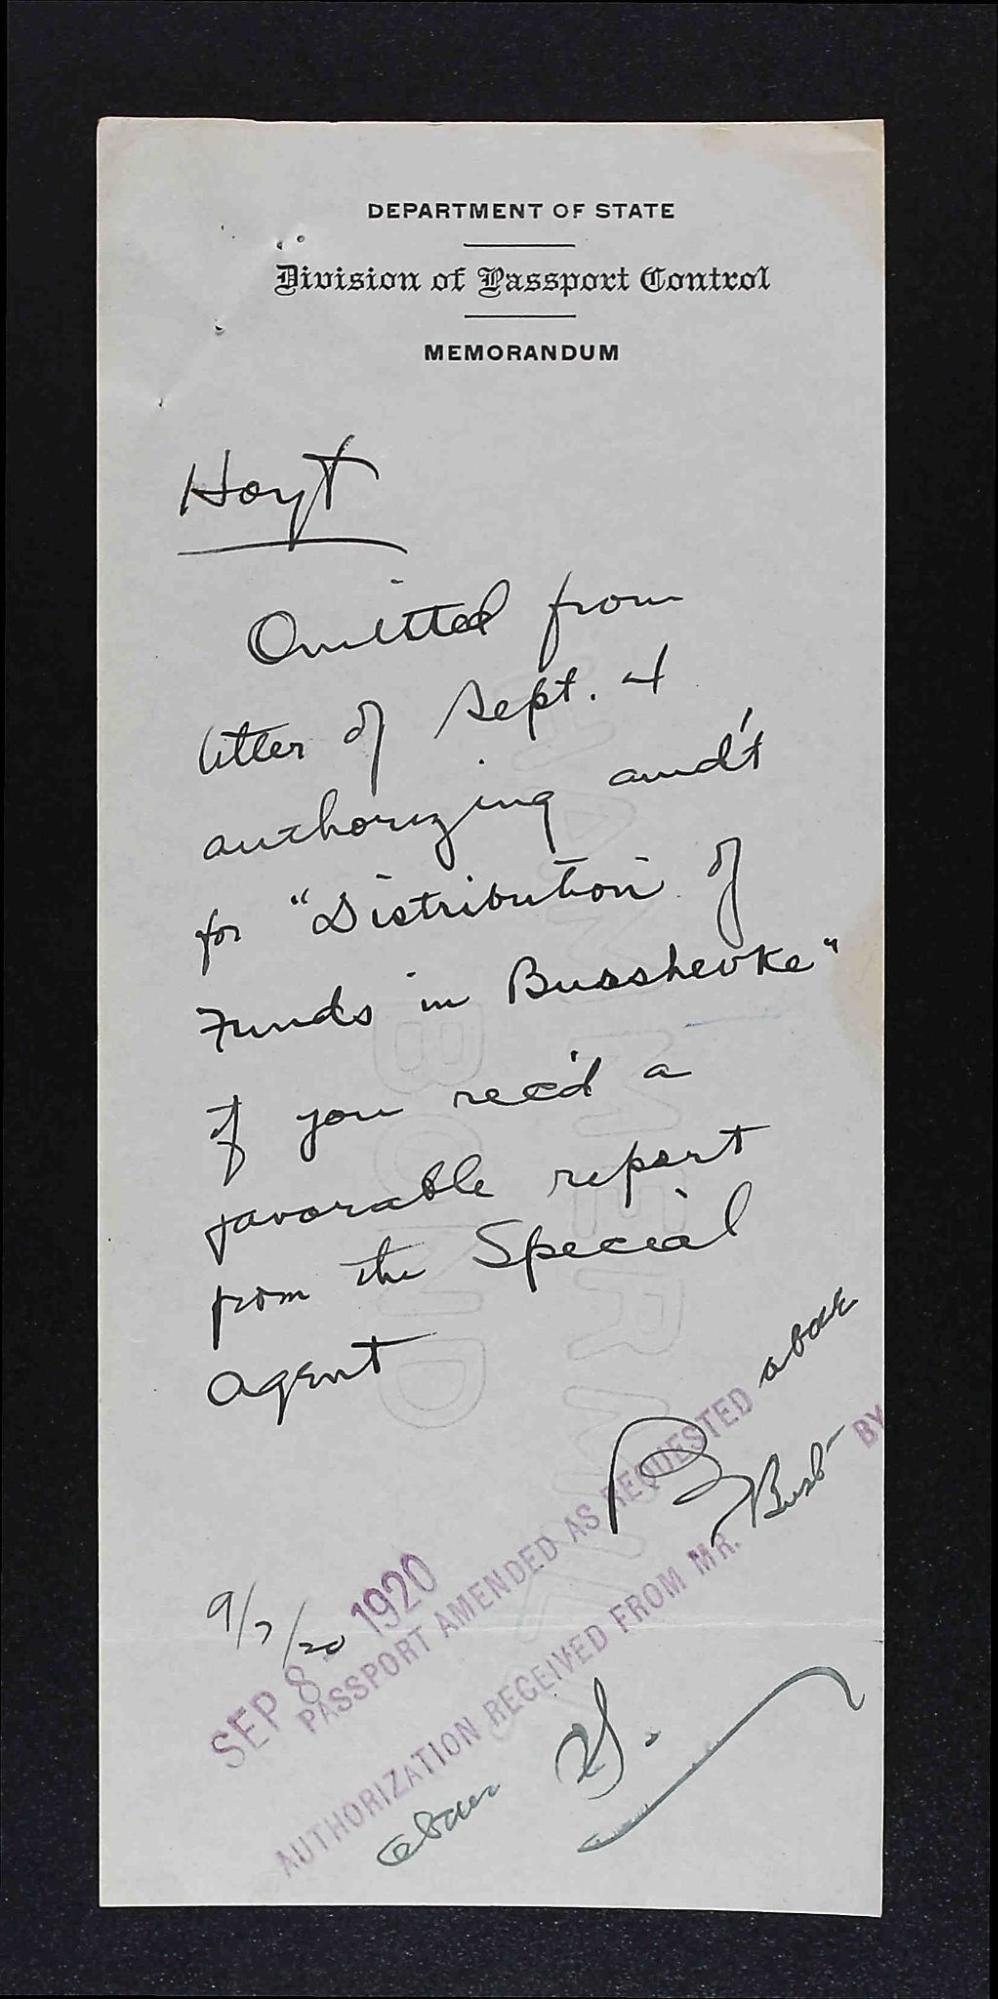 DEPARTMENT OF STATE
Division of Passport Control
MEMORANDUM
Hoyt
Omitted from
letter of Sept. 4
authorizing amd't
for "Distribution of
Funds in Busshevke"
if you rec'd a
favorable report
from the Special
agent
B
9/7/20
SEP 8 1920
PASSPORT AMENDED AS REQUESTED above
BY
AUTHORIZATION RECEIVED FROM MR.
HAMMERMILL
BOND